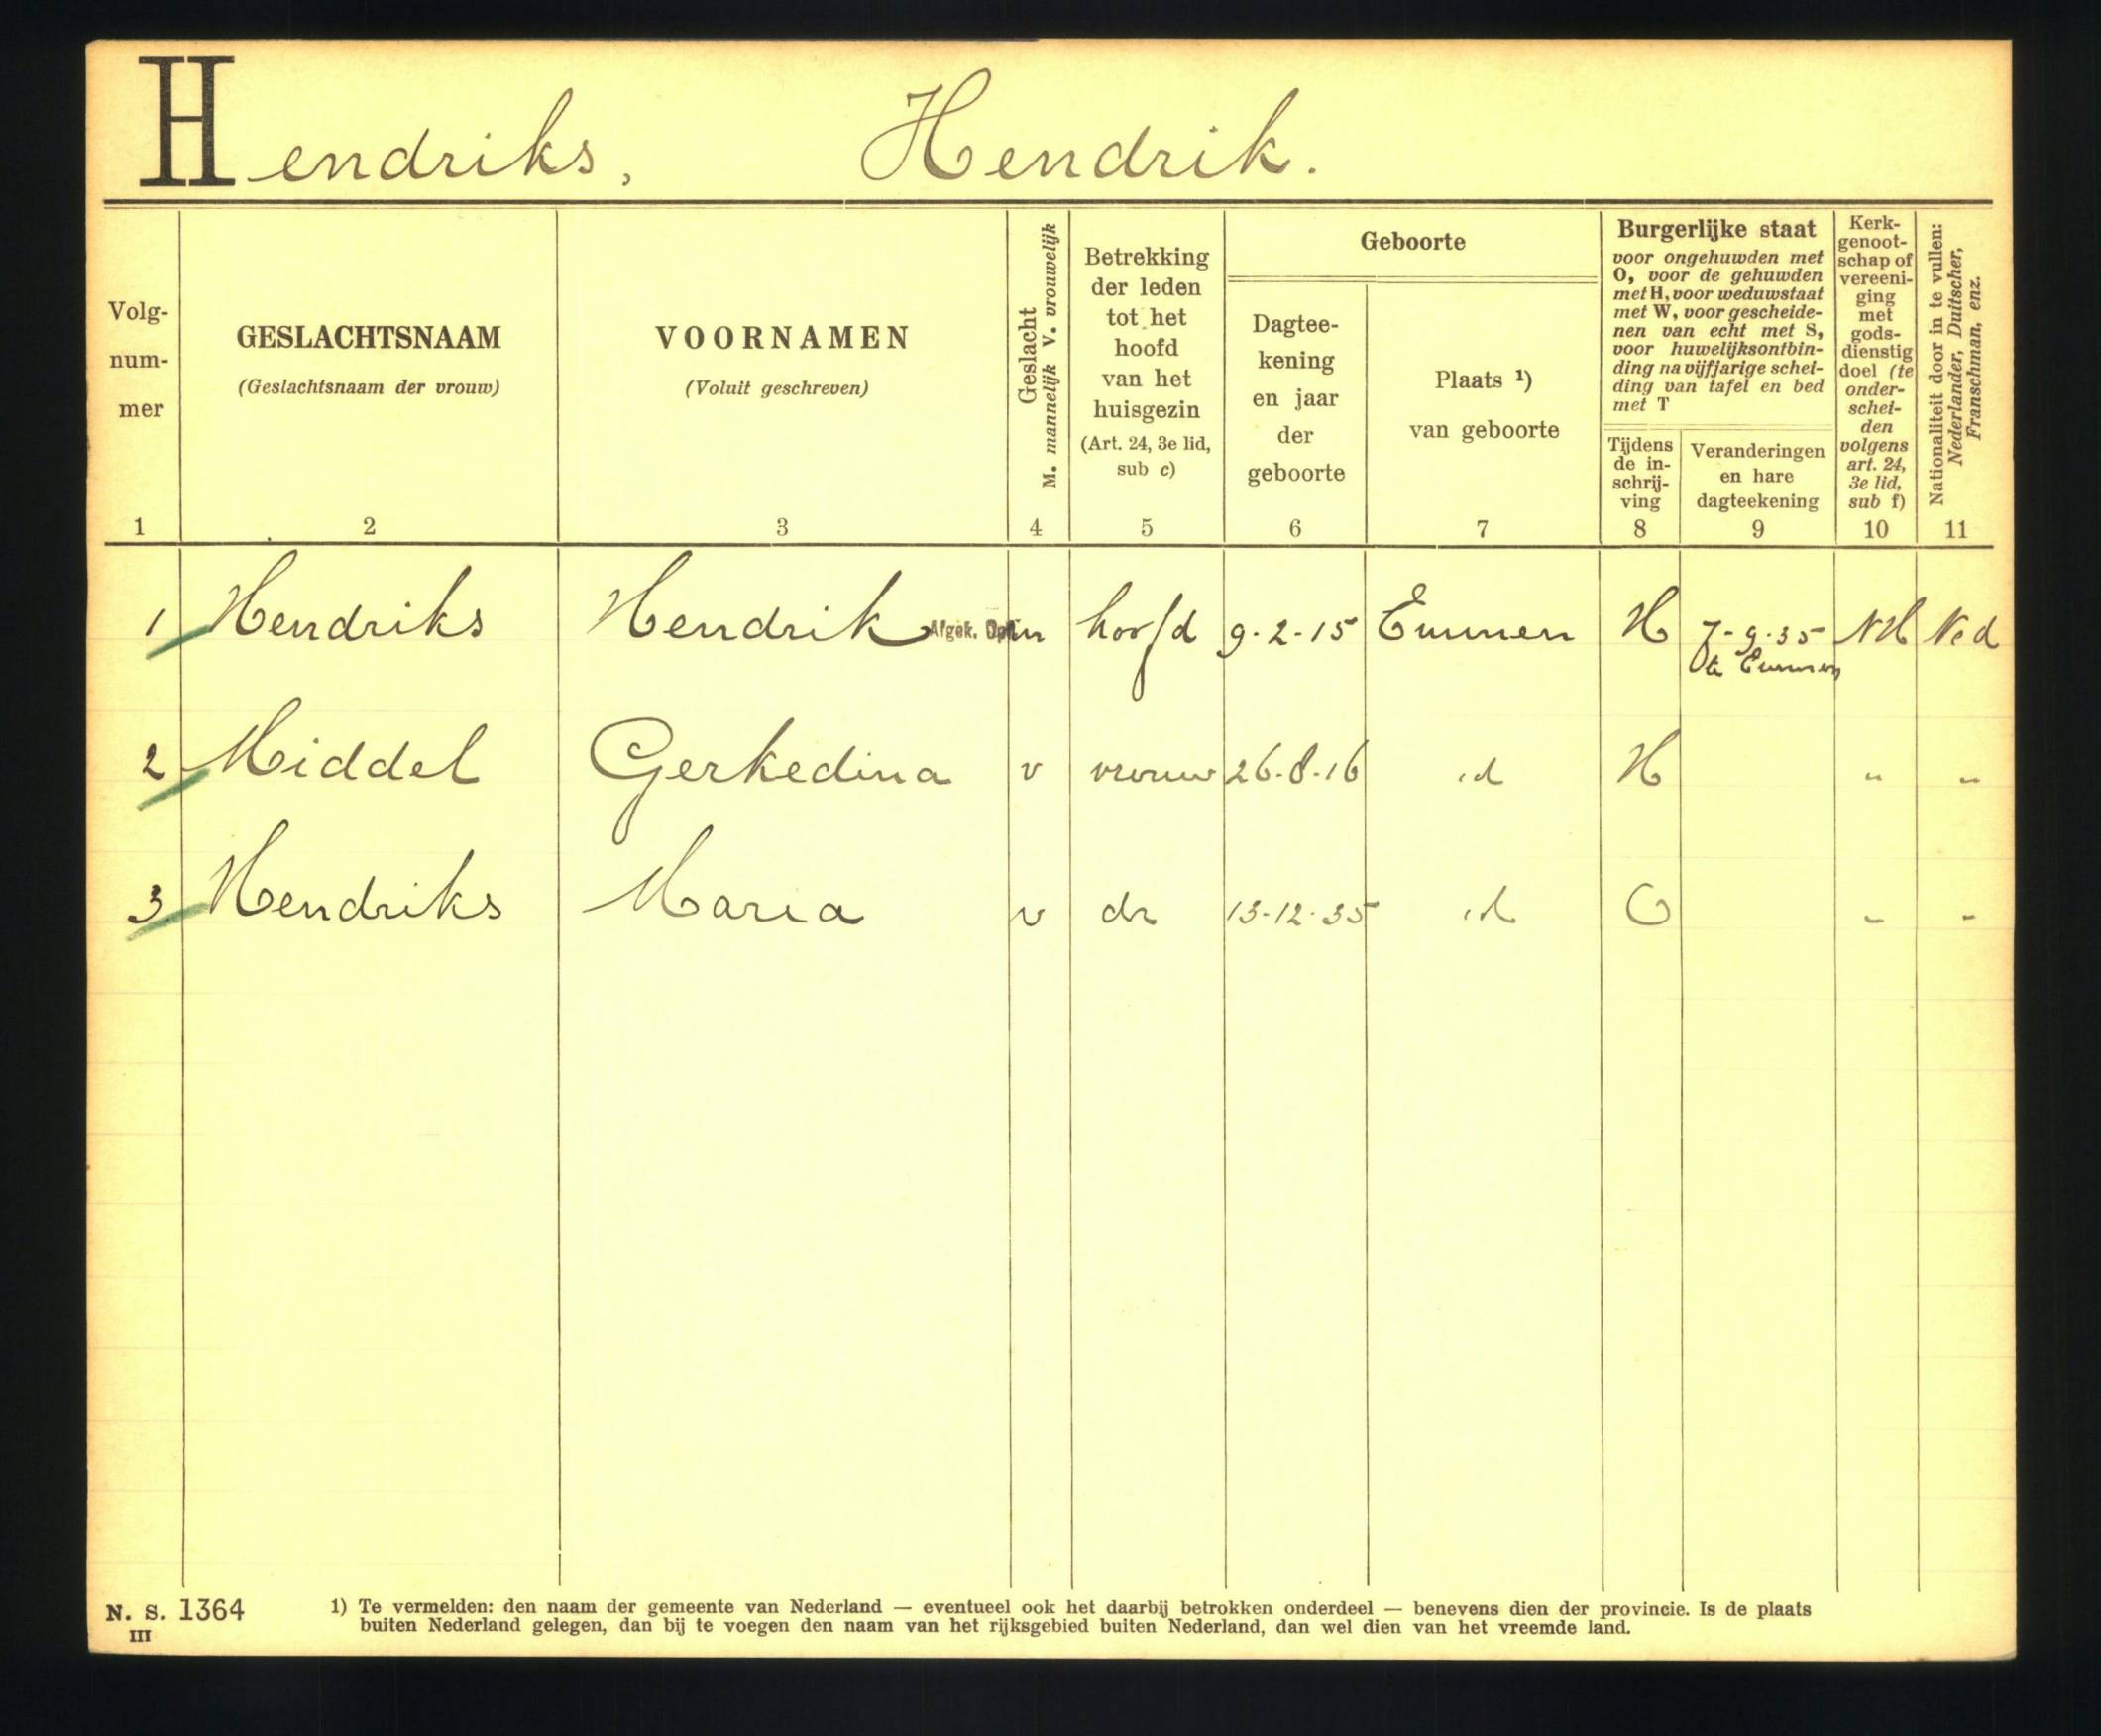 Hendriks, Hendrik.
Volg-
num-
mer
1
GESLACHTSNAAM
(Geslachtsnaam der vrouw)
2
VOORNAMEN
(Voluit geschreven)
3
Geslacht
M. mannelijk V. vrouwelijk
4
Betrekking
der leden
tot het
hoofd
van het
huisgezin
(Art. 24, 3e lid,
sub c)
5
Geboorte
Dagtee-
kening
en jaar
der
geboorte
6
Plaats ¹)
van geboorte
7
Burgerlijke staat
voor ongehuwden met
O, voor de gehuwden
met H, voor weduwstaat
met W, voor gescheide-
nen van echt met S,
voor huwelijksontbin-
ding na vijfjarige schei-
ding van tafel en bed
met T
Tijdens
de in-
schrij-
ving
8
Veranderingen
en hare
dagteekening
9
Kerk-
genoot-
schap of
vereeni-
ging
met
gods-
dienstig
doel (te
onder-
schei-
den
volgens
art. 24,
3e lid,
sub f)
10
Nationaliteit door in te vullen:
Nederlander, Duitscher,
Franschman, enz.
11
1 Hendriks Hendrik Afgek. m hoofd 9-2-15 Emmen H 7-9-35 NH Ned
te Emmen
2 Middel Gerkedina v vrouw 26-8-16 id H " "
3 Hendriks Maria v dr 13-12-35 id O " "
N. S. 1364
III
1) Te vermelden: den naam der gemeente van Nederland — eventueel ook het daarbij betrokken onderdeel — benevens dien der provincie. Is de plaats
buiten Nederland gelegen, dan bij te voegen den naam van het rijksgebied buiten Nederland, dan wel dien van het vreemde land.